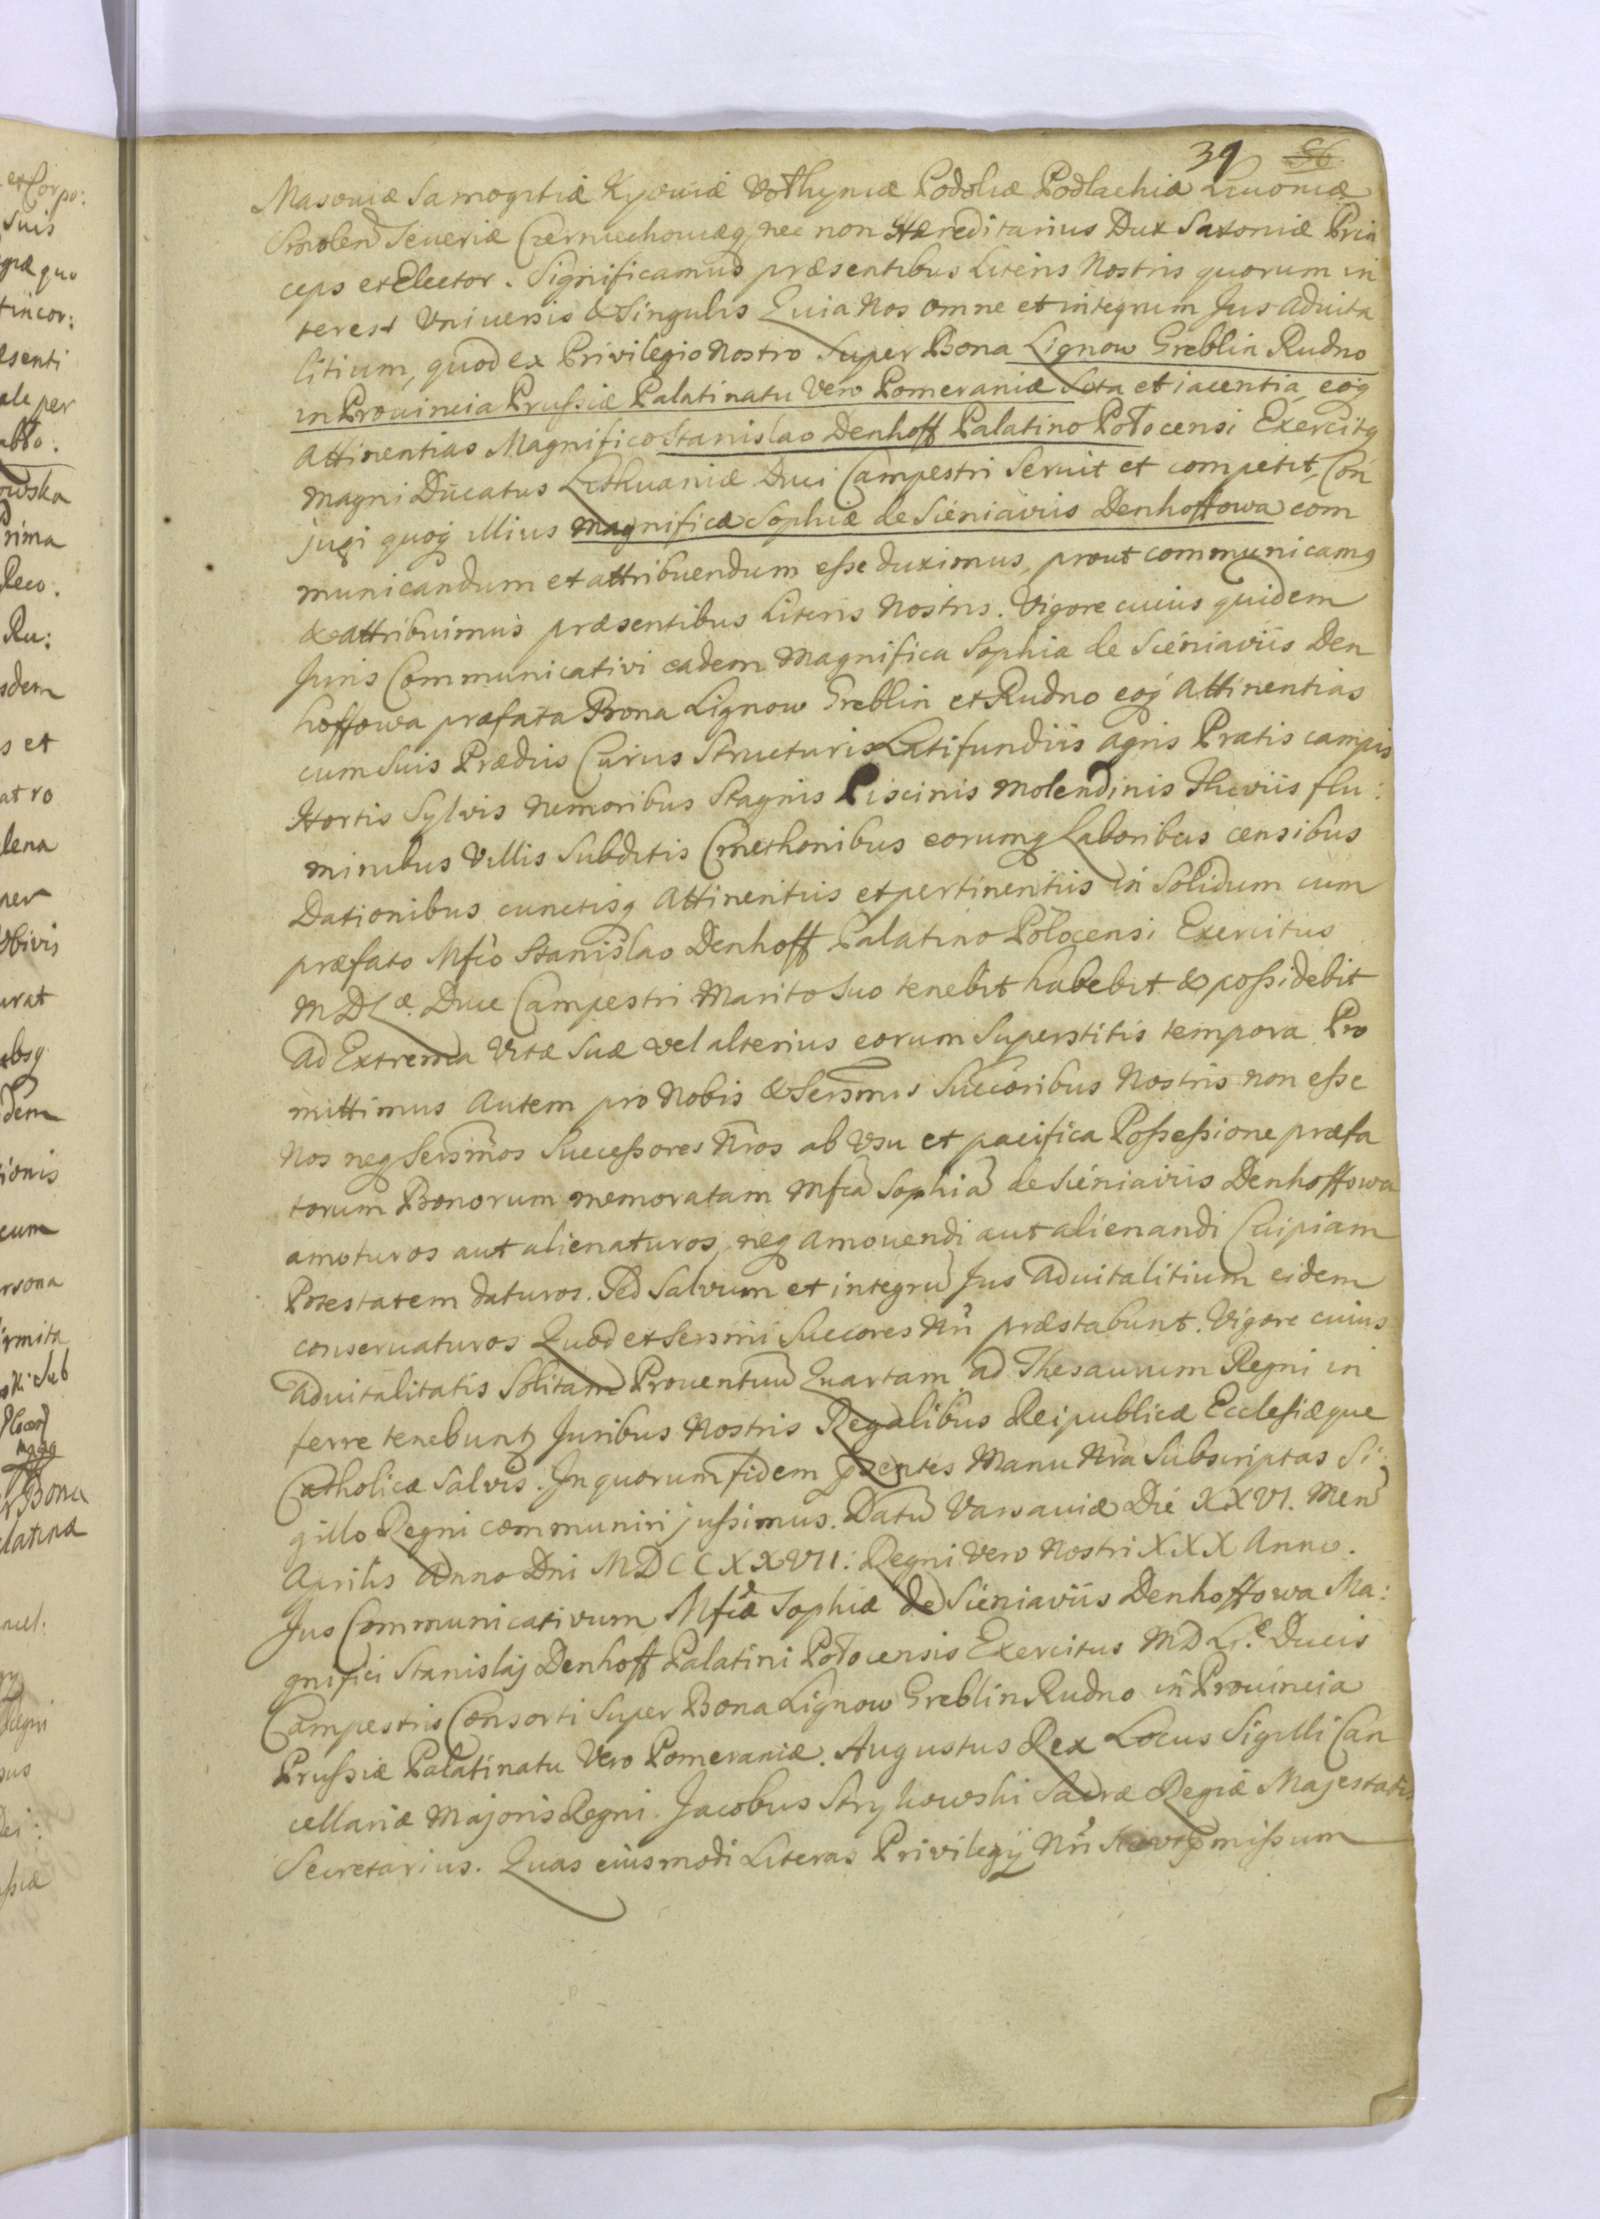 39 56
Masoviæ Samogitiæ Kyoviæ Volhyniæ Podoliæ Podlachiæ Livoniæ
Smolen Severiæ Czerniechoviæq nec non Hæreditarius Dux Saxoniæ Prin
ceps et Elector. Significamus præsentibus Literis Nostris quorum in
terest Universis & Singulis Quia Nos omne et integrum Jus advita
litium, quod ex Privilegio Nostro Super Bona Lignow Greblin Rudno
in Provincia Prussiæ Palatinatu Vero Pomeraniæ Sita et iacentia, eoq
attinentias Magnifico Stanislao Denhoff Palatino Połocensi Exercitq
Magni Ducatus Lithuaniæ Duci Campestri Servit et competit, Con
jugi quoq illius Magnificæ Sophiæ de Sieniaviis Denhoffowa com
municandum et attribuendum esse duximus, prout communicamq
& attribuimus præsentibus Literis Nostris. Vigore cuius quidem
Juris Communicativi eadem Magnifica Sophia de Sieniaviis Den
hoffowa præfata Bona Lignow Greblin et Rudno eoq Attinentias
cum Suis Prædiis Curiis Structuris Latifundiis Agris Pratis campis
Hortis Sylvis Nemoribus Stagnis Piscinis Molendinis Fluviis flu:
minibus Villis Subditis Cmethonibus eorumq Laboribus censibus
Dationibus cunctisq Attinentiis et pertinentiis in Solidum cum
præfato Mfico Stanislao Denhoff Palatino Połocensi Exercitus
M D L æ. Duce Campestri Marito Suo tenebit habebit & possidebit
Ad Extrema Vitæ Suæ vel alterius eorum Superstitis tempora. Pro
mittimus Autem pro Nobis & Sersmis Succoribus Nostris non esse
Nos neq Sersmos Successores Nros ab Usu et pacifica Possessione præfa
torum Bonorum memoratam Mfca Sophia de Sieniaviis Denhoffowa
amoturos aut alienaturos, neq amovendi aut alienandi Cuipiam
Potestatem daturos. Sed Salvum et integru Jus Advitalitium eidem
conservaturos Quod et Sersmi Succores Nri præstabunt. Vigore cuius
Advitalitatis Solitam Proventuu Quartam ad Thesaurum Regni in
ferre tenebuntq Juribus Nostris Regalibus Reipublicæ Ecclesiæque
Catholicæ Salvis. In quorum fidem pntes Manu Nra Subscriptas Si:
gillo Regni communiri jussimus. Datu Varsaviæ Die XXVI. Men
Aprilis Anno Dni MDCCXXVII: Regni Vero Nostri XXX Anno.
Jus Communicativum Mficæ Sophiæ de Sieniaviis Denhoffowa Ma:
gnifici Stanislaj Denhoff Palatini Połocensis Exercitus M D L. æ Ducis
Campestris Consorti Super Bona Lignow Greblin Rudno in Provincia
Prussiæ Palatinatu Vero Pomeraniæ. Augustus Rex Locus Sigilli Can
cellariæ Majoris Regni. Jacobus Strykowski Sacræ Regiæ Majestatis
Secretarius. Quas eiusmodi Literas Privilegij Nri missum